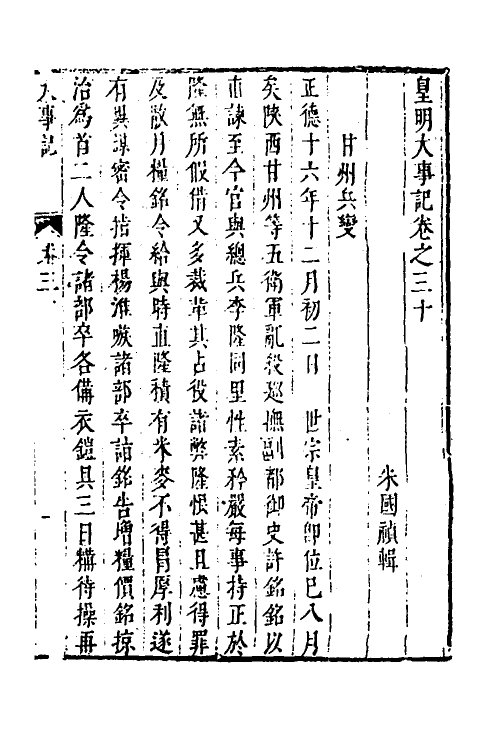 皇明大事記卷之三十
朱國禎輯
甘州兵變
正德十六年十二月初二日 世宗皇帝卽位已八月
矣陝西甘州等五衛軍亂殺巡撫副都御史許銘銘以
直諫至今官與總兵李隆同里性素矜嚴每事持正於
隆無所假借又多裁革其占役諸弊隆恨甚且慮得罪
及散月糧銘令給與時直隆積有米麥不得冐厚利遂
有異謀密令指揮楊淮嗾諸部卒詣銘告增糧價銘掠
治爲首二人隆令諸部卒各備衣鎧具三日糒待操再
大事記 卷三 一